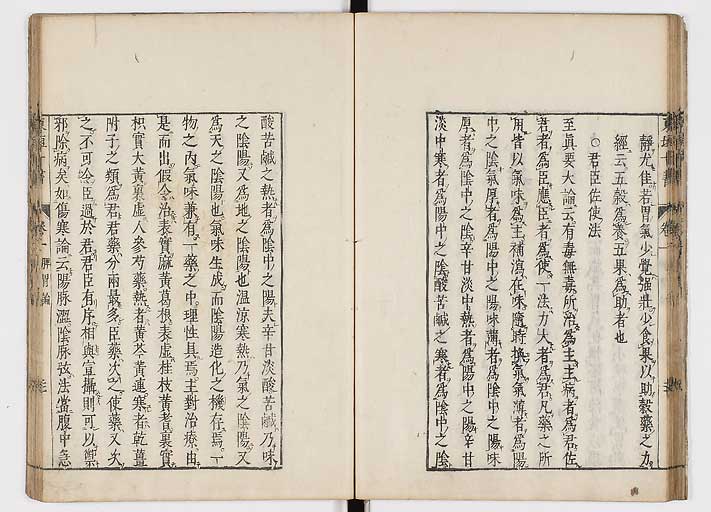 靜尤佳若胃氣少覺强壯少食果以助穀藥之力
經云五穀爲養五果爲助者也
○君臣佐使法
至眞要大論云有毒無毒所治爲主主病者爲君佐
君者爲臣應臣者爲使一法力大者爲君凡藥之所
用皆以氣味爲主補瀉在味隨時換氣氣薄者爲陽
中之陰氣厚者爲陽中之陽味薄者爲陰中之陽味
厚者爲陰中之陰辛甘淡中熱者爲陽中之陽辛甘
淡中寒者爲陽中之陰酸苦鹹之寒者爲陰中之陰
酸苦鹹之熱者爲陰中之陽夫辛甘淡酸苦鹹乃味
之陰陽又爲地之陰陽也溫涼寒熱乃氣之陰陽又
爲天之陰陽也氣味生成而陰陽造化之機存焉一
物之內氣味兼有一藥之中理性具焉主對治療由
是而出假令治表實麻黃葛根表虛桂枝黃耆裏實
枳實大黃裏虛人參芍藥熱者黃芩黃連寒者乾薑
附子之類爲君君藥分兩最多臣藥次之使藥又次
之不可令臣過於君君臣有序相與宣攝則可以禦
邪除病矣如傷寒論云陽脉濇陰脉弦法當腹中急
脾胃論